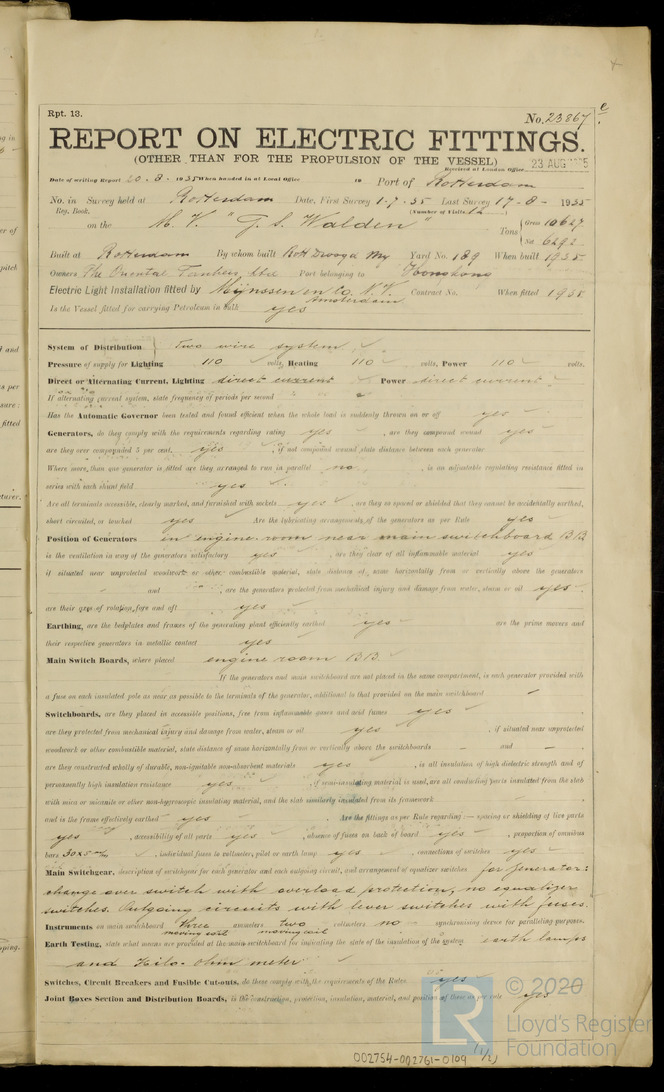 Rpt. 13.
No. 23867
REPORT ON ELECTRIC FITTINGS.
(OTHER THAN FOR THE PROPULSION OF THE VESSEL)
Received at London Office 23 AUG
Date of writing Report 20-8-1935 When handed in at Local Office 19 Port of Rotterdam
No. in Survey held at Rotterdam Date, First Survey 1-7-35 Last Survey 17-8-1935
Reg. Book. (Number of Visits 12)
on the M.V. "G. S. Walden" Tons { Gross 10627
Net 6292
Built at Rotterdam By whom built Rott Droogd My Yard No. 189 When built 1935
Owners The Oriental Tankers, Ltd Port belonging to Hongkong
Electric Light Installation fitted by Mijnssen en Co. N.V. Amsterdam Contract No. When fitted 1935
Is the Vessel fitted for carrying Petroleum in bulk yes
System of Distribution Two wire system
Pressure of supply for Lighting 110 volts, Heating 110 volts, Power 110 volts.
Direct or Alternating Current, Lighting direct current Power direct current
If alternating current system, state frequency of periods per second
Has the Automatic Governor been tested and found efficient when the whole load is suddenly thrown on or off yes
Generators, do they comply with the requirements regarding rating yes, are they compound wound yes
are they over compounded 5 per cent. yes, if not compound wound state distance between each generator
Where more than one generator is fitted are they arranged to run in parallel no, is an adjustable regulating resistance fitted in
series with each shunt field yes
Are all terminals accessible, clearly marked, and furnished with sockets yes, are they so spaced or shielded that they cannot be accidentally earthed,
short circuited, or touched yes Are the lubricating arrangements of the generators as per Rule yes
Position of Generators in engine room near main switchboard BB
is the ventilation in way of the generators satisfactory yes, are they clear of all inflammable material yes
if situated near unprotected woodwork or other combustible material, state distance of same horizontally from or vertically above the generators
- and -, are the generators protected from mechanical injury and damage from water, steam or oil yes.
are their axes of rotation fore and aft yes
Earthing, are the bedplates and frames of the generating plant efficiently earthed yes are the prime movers and
their respective generators in metallic contact yes
Main Switch Boards, where placed engine room BB
If the generators and main switchboard are not placed in the same compartment, is each generator provided with
a fuse on each insulated pole as near as possible to the terminals of the generator, additional to that provided on the main switchboard -
Switchboards, are they placed in accessible positions, free from inflammable gases and acid fumes yes
are they protected from mechanical injury and damage from water, steam or oil yes, if situated near unprotected
woodwork or other combustible material, state distance of same horizontally from or vertically above the switchboards - and -
are they constructed wholly of durable, non-ignitable non-absorbent materials yes, is all insulation of high dielectric strength and of
permanently high insulation resistance yes, if semi-insulating material is used, are all conducting parts insulated from the slab
with mica or micanite or other non-hygroscopic insulating material, and the slab similarly insulated from its framework
and is the frame effectively earthed yes. Are the fittings as per Rule regarding:- spacing or shielding of live parts
yes, accessibility of all parts yes, absence of fuses on back of board yes, proportion of omnibus
bars 30x5 m/m, individual fuses to voltmeter, pilot or earth lamp yes, connections of switches yes
Main Switchgear, description of switchgear for each generator and each outgoing circuit, and arrangement of equalizer switches for generator:
change over switch with overload protection, no equalizer
switches. Outgoing circuits with lever switches with fuses.
Instruments on main switchboard three moving coil ammeters two moving coil voltmeters no synchronising device for paralleling purposes.
Earth Testing, state what means are provided at the main switchboard for indicating the state of the insulation of the system earth lamps
and Kilo-ohm meter
Switches, Circuit Breakers and Fusible Cut-outs, do these comply with the requirements of the Rules yes
Joint Boxes Section and Distribution Boards, is the construction, protection, insulation, material, and position of these as per rule yes
© 2020
LR
Lloyd's Register
Foundation
002754-002761-0109 1/2